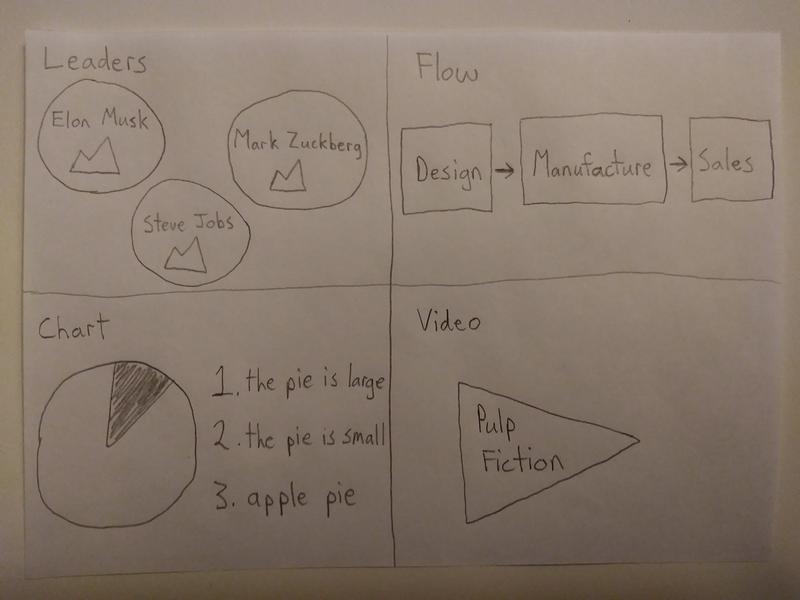 Leaders
Elon Musk
Mark Zuckberg
Steve Jobs
Flow
Design → Manufacture → Sales
Chart
1. the pie is large
2. the pie is small
3. apple pie
Video
Pulp
Fiction